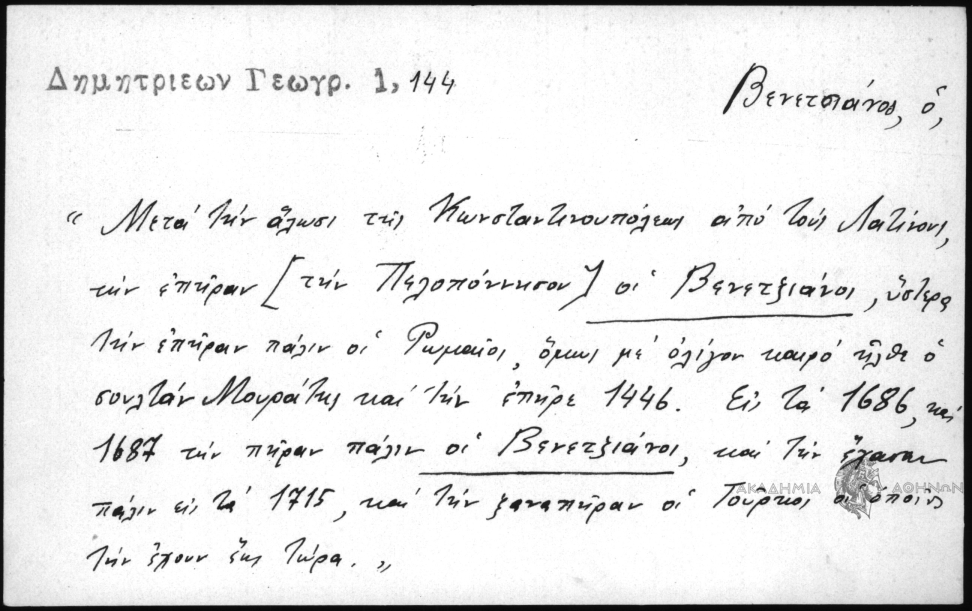 Δημητριεων Γεωγρ. 1, 144
Βενετσιάνος, ὁ,
“ Μετά τήν ἅλωσι τῆς Κωνσταντινουπόλεως ἀπό τούς Λατίνους,
τήν ἐπῆραν [τήν Πελοπόννησον] οἱ Βενετζιάνοι, ὕστερα
τήν ἐπῆραν πάλιν οἱ Ρωμαῖοι, ὅμως μέ ὀλίγον καιρό ἦλθε ὁ
σουλτάν Μουράτης καί τήν ἐπῆρε 1446. Εἰς τά 1686, καί
1687 τήν πῆραν πάλιν οἱ Βενετζιάνοι, καί τήν ἔχασαν
πάλιν εἰς τά 1715, καί τήν ξαναπῆραν οἱ Τοῦρκοι οἱ ὁποῖοι
τήν ἔχουν ἕως τώρα. „
ΑΚΑΔΗΜΙΑ ΑΘΗΝΩΝ